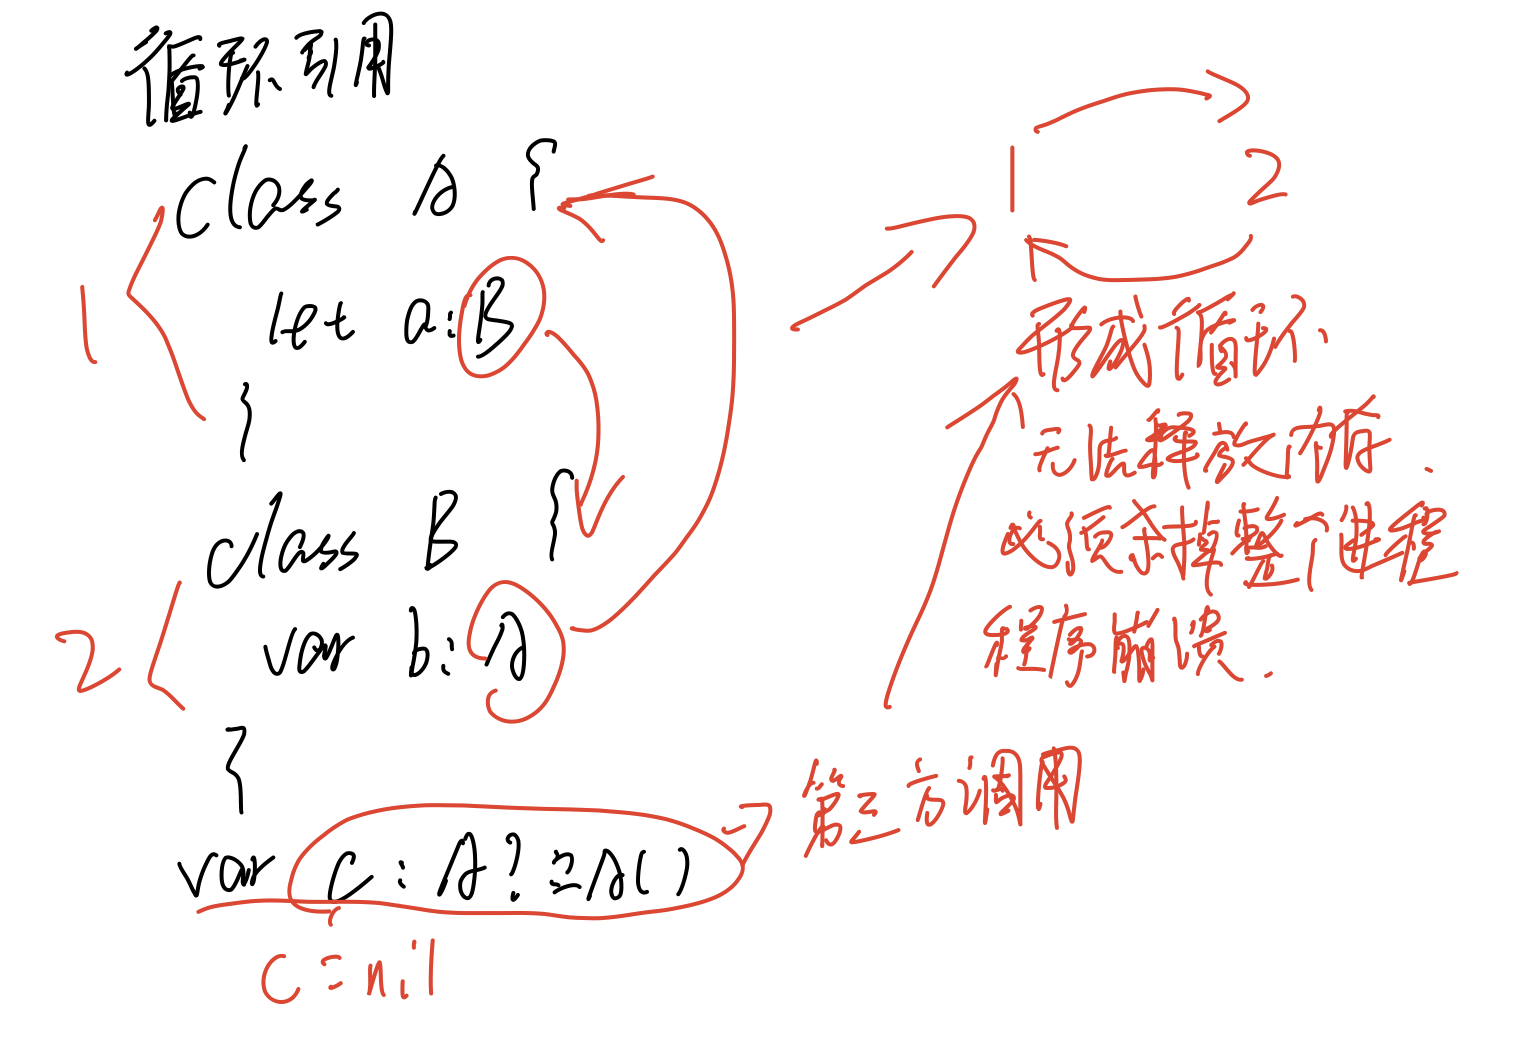 循环引用
class A {
let a:B
}
class B {
var b:A
}
var c:A?=A()
c=nil
1
2
1 2
形成循环
无法释放内存.
必须杀掉整个进程
程序崩溃.
第三方调用